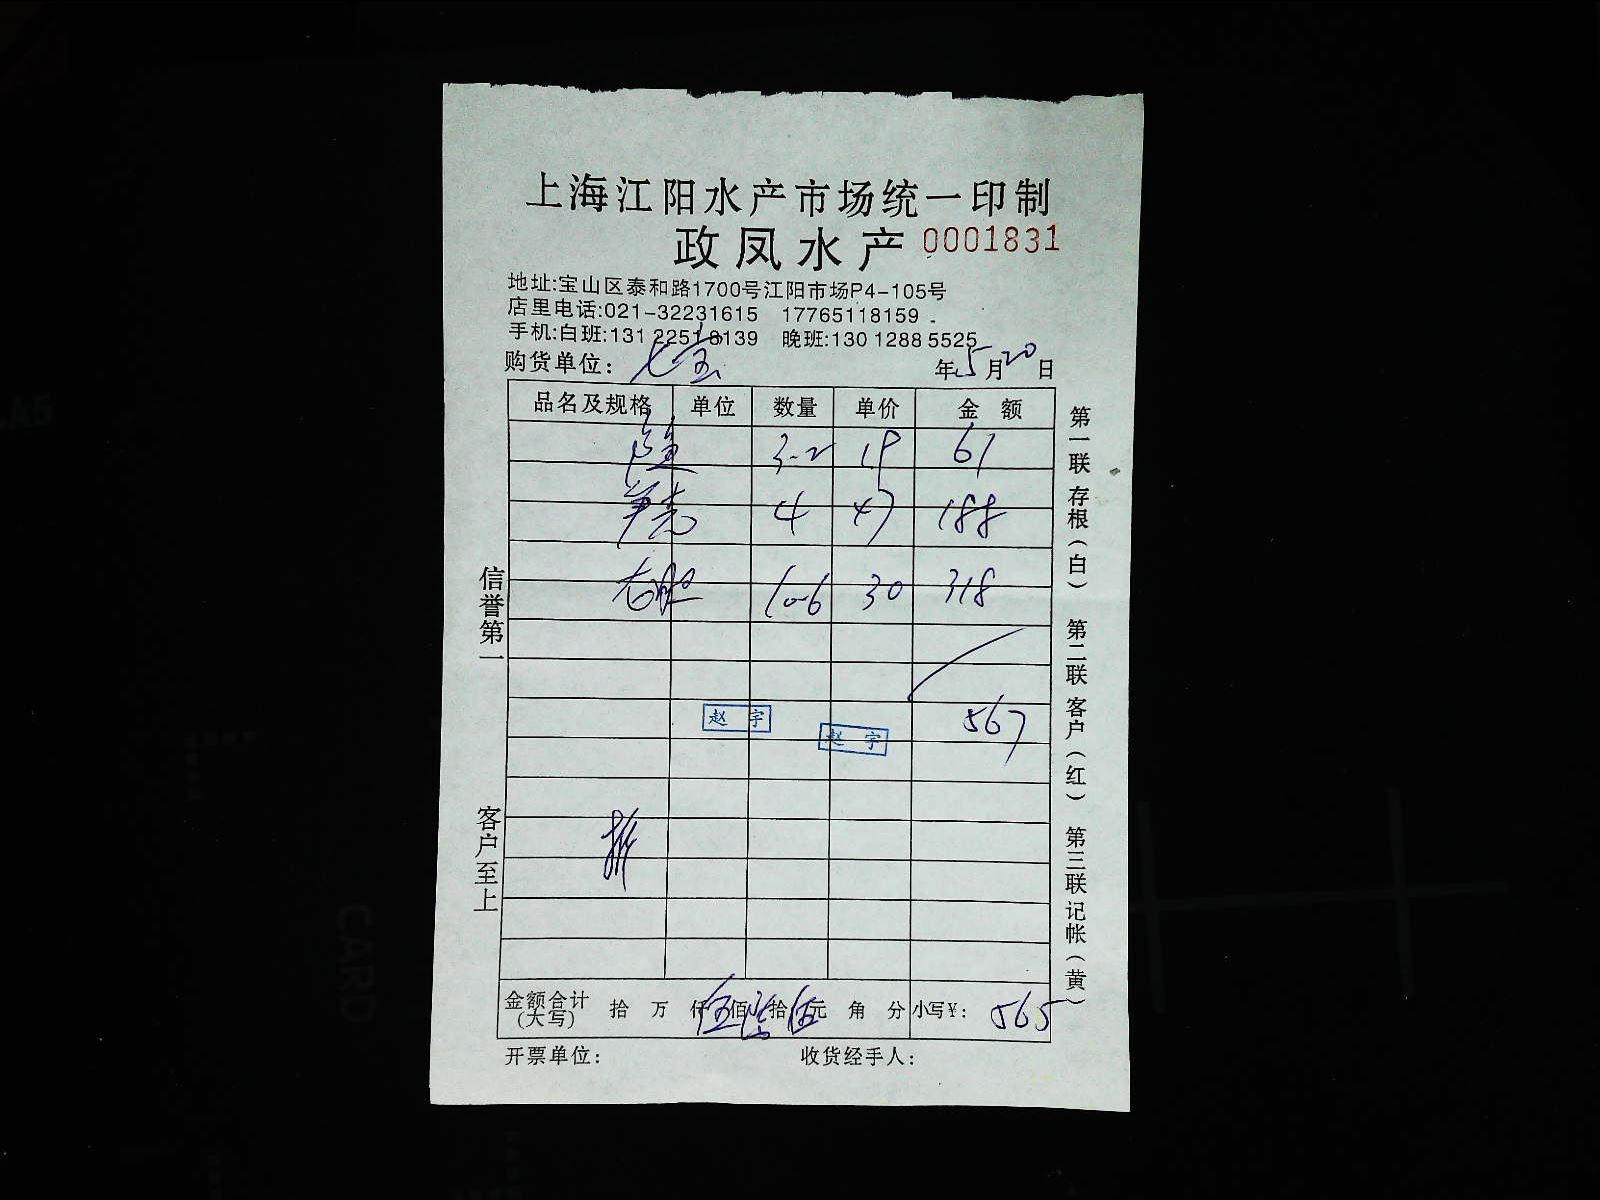 上海江阳水产市场统一印制
政凤水产 0001831
地址:宝山区泰和路1700号江阳市场P4-105号
店里电话:021-32231615 17765118159
手机:白班:131 2251 8139 晚班:130 1288 5525
购货单位: 七宝 年5月20日
品名及规格 单位 数量 单价 金 额
3-2 19 61
4 47 188
10-6 30 318
567
赵 宇
赵 宇
金额合计(大写) 拾 万 仟伍佰陆拾伍元 角 分 小写¥: 565
开票单位: 收货经手人:
信誉第一
客户至上
第一联 存根(白) 第二联 客户(红) 第三联 记帐(黄)